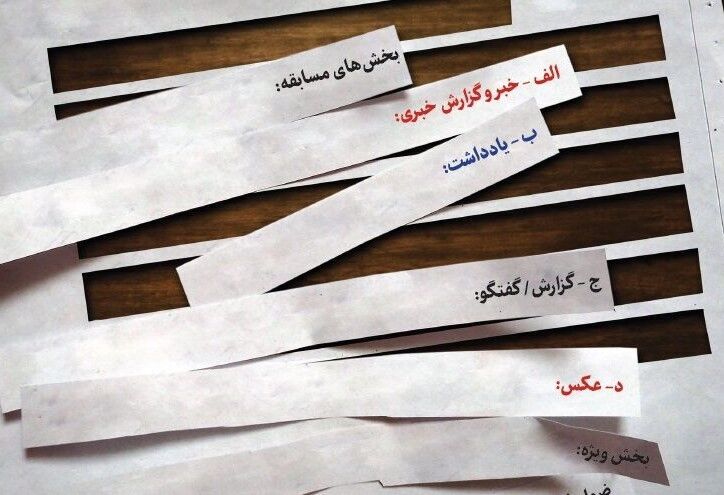 بخش‌های مسابقه:
الف - خبر و گزارش خبری:
ب - یادداشت:
ج - گزارش / گفتگو:
د- عکس:
بخش ویژه: